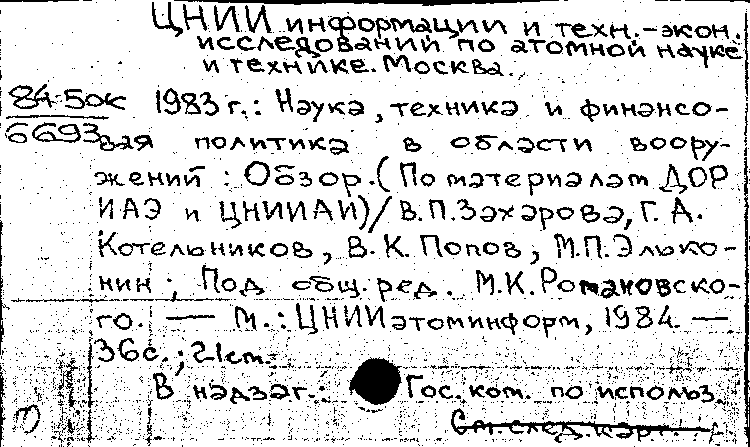 ЦНИИ информации и техн.-экон.
исследований по атомной науке
и технике. Москва.
84-50к
6693
1983 г.: Наука, техника и финансо-
вая политика в области воору-
жений : Обзор. (По материалам ДОР
ИАЭ и ЦНИИАИ) / В.П.Захарова, Г. А.
Котельников, В.К. Попов, М.П.Элько-
нин ; Под общ. ред. М.К.Романовско-
го. — М.: ЦНИИатоминформ, 1984. —
36с.; 21cm.
В надзаг.: Гос. ком. по использ.
См. след. карт.